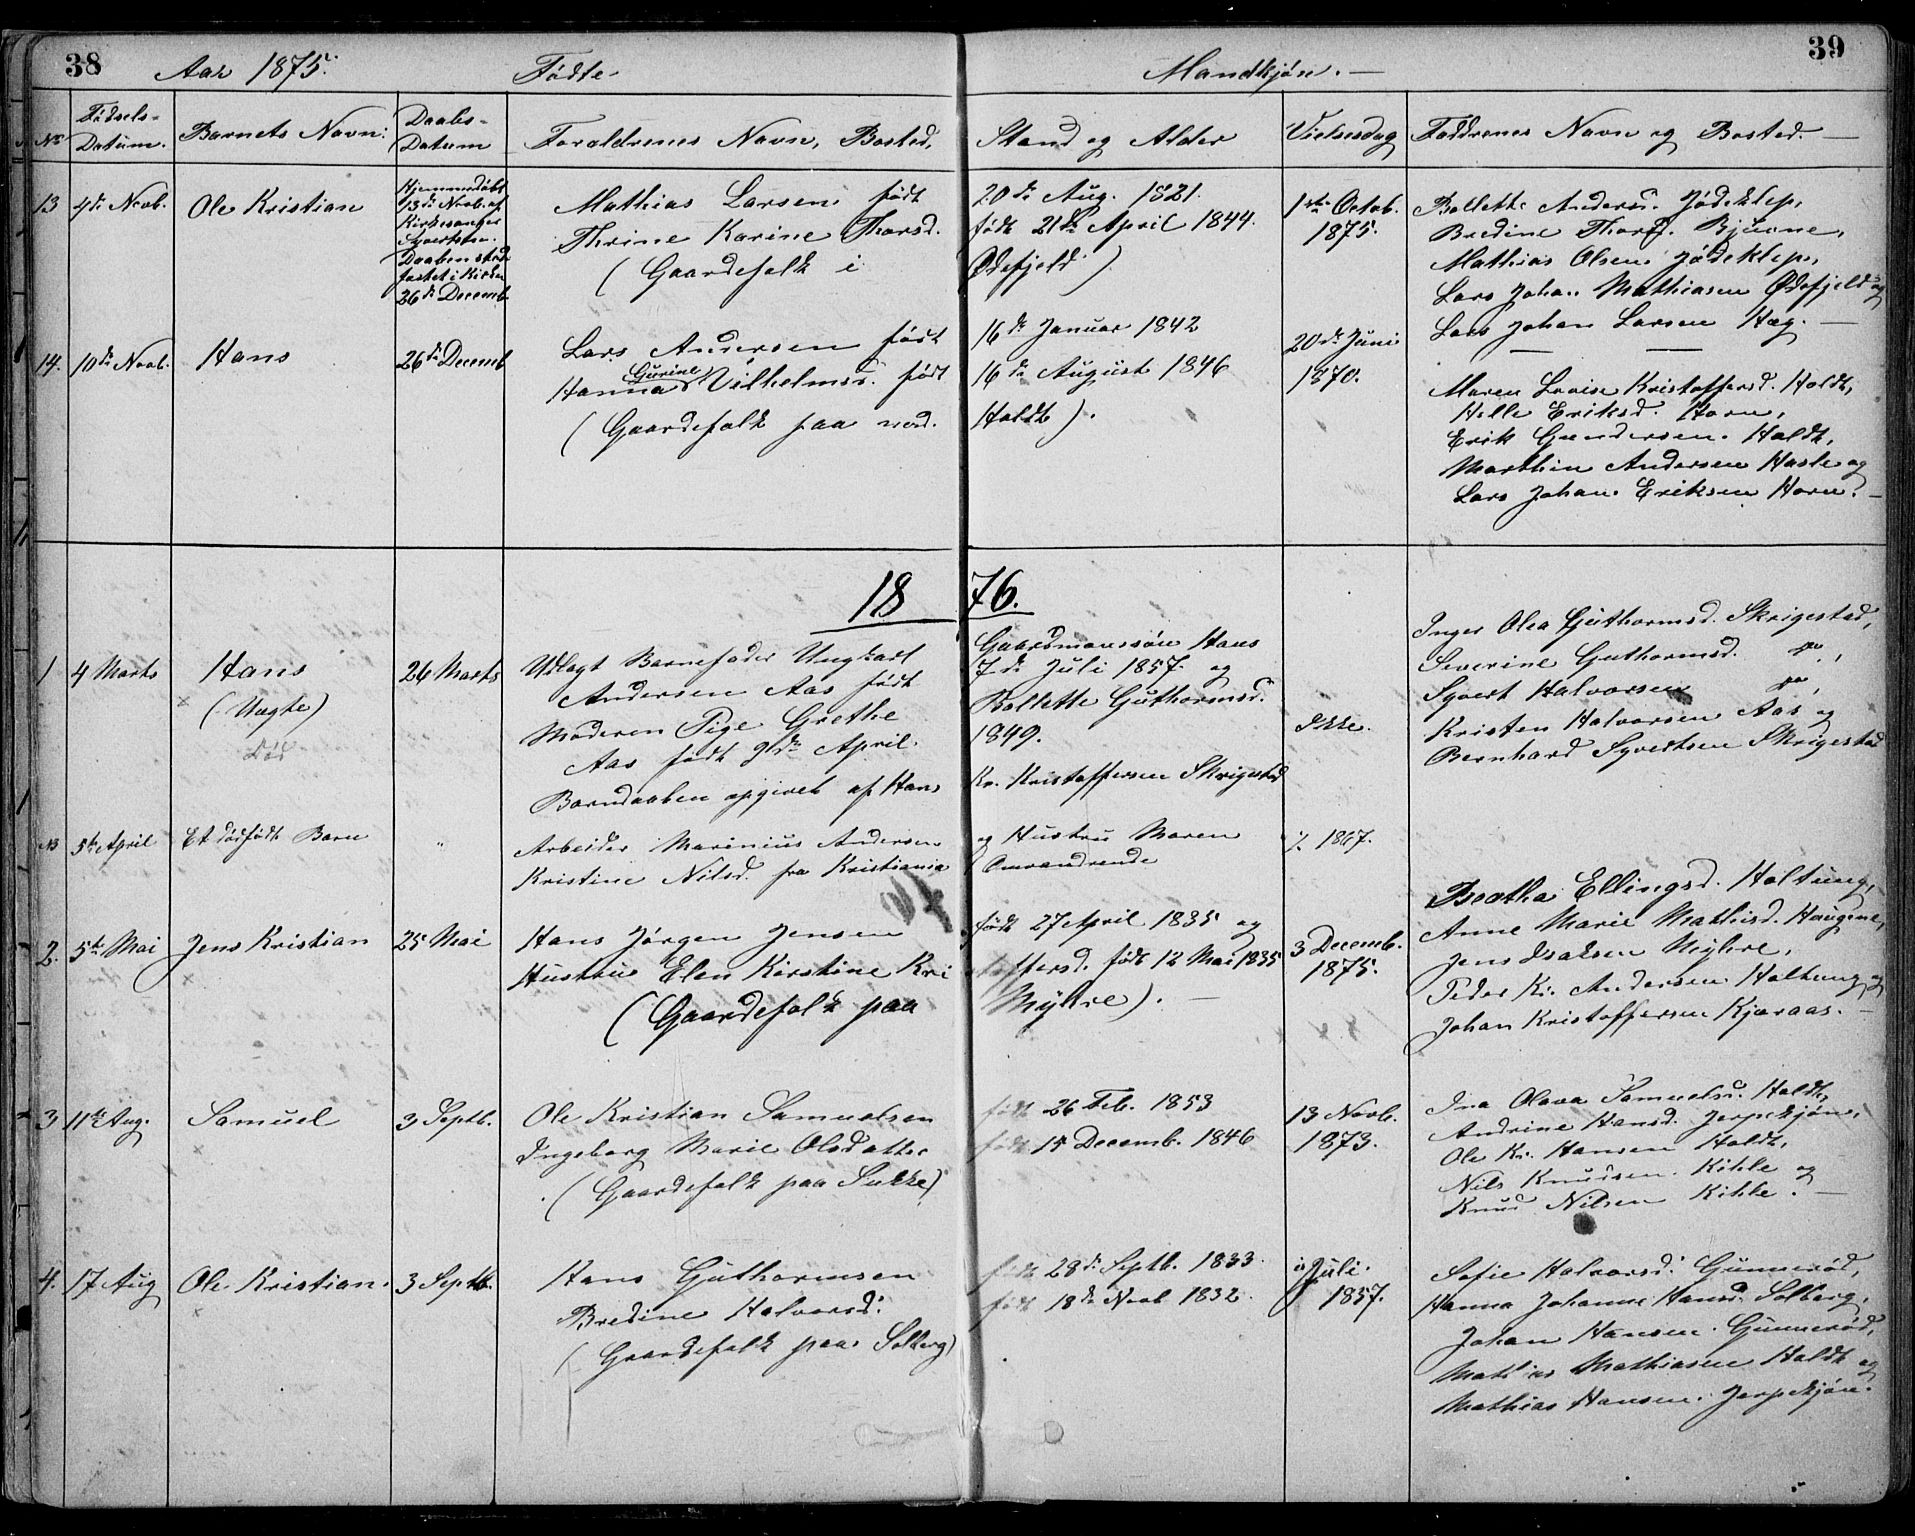 38 Aar 1875. Fødte Mandkjøn. — 39
No Fødsels- Datum. Barnets Navn: Daabs- Datum Forældrenes Navn, Bosted, Stand og Alder Vielsesdag Faddrenes Navn og Bosted. —
13 4de Novb. Ole Kristian
Hjemmedøbt
13de Novb. af
Kirkesanger
Syvertsen.
Daaben stad
fæstet i Kirken
26de Decemb.
Mathias Larsen født 20de Aug. 1821.
Thrine Karine Thorsd. født 21de April 1844.
(Gaardefolk i Ødefjeld)
1ste Octob.
1875.
Bollette Andersd. Jødeklep,
Bredine Thorsd. Bjuerne,
Mathias Olsen Jødeklep,
Lars Johan Mathiasen Ødefjeld og
Lars Johan Larsen Hæg. —
14. 10de Novb. Hans 26de Decemb
Lars Andersen født 16de Januar 1842
Hanna Gurine Vilhelmsd. født 16de August 1846
(Gaardefolk paa nord. Holdt).
20de Juni
1870.
Maren Lovise Kristoffersd. Holdt,
Helle Eriksd. Horn,
Erik Gundersen. Holdt,
Marthin Andersen Hasle og
Lars Johan Eriksen Horn. —
1876.
1 4 Marts Hans
(Uægte)
Død
26 Marts
Udlagt Barnefader Ungkarl Gaardmandssøn Hans
Andersen Aas født 7de Juli 1857. og
Moderen Pige Grethe Bollette Guthormsd.
Aas født 9de April. 1849.
Barndaaben opgivet af Hans Kr. Kristoffersen Skrigestad
Ikke.
Inger Olea Guthormsd. Skrigestad,
Severine Guthormsd. do,
Syvert Halvorsen do,
Kristen Halvorsen Aas og
Bernhard Syvertsen Skrigestad
NB 5te April Et dødfødt Barn "
Arbeider Marinius Andersen og Hustru Maren
Kristine Nilsd. fra Kristiania Omvandrende
1867.
2. 5te Mai Jens Kristian 25 Mai
Hans Jørgen Jensen født 27 April 1835 og
Hustru Elen Kirstine Kristoffersd. født 12 Mai 1835
(Gaardefolk paa Myhre). —
3 Decemb.
1875.
Beatha Ellingsd. Holtung,
Anne Marie Mathisd. Haugene,
Jens Isaksen Myhre,
Peder Kr. Andersen Holtung og
Johan Kristoffersen Kjæraas. —
3 11te Aug. Samuel 3 Septb.
Ole Kristian Samuelsen født 26 Feb. 1853
Ingeborg Marie Olsdatter født 15 Decemb. 1846
(Gaardefolk paa Sukke)
13 Novb.
1873.
Ina Olava Samuelsd. Holdt,
Andrine Hansd. Jerpekjøn,
Ole Kr. Hansen Holdt,
Nils Knudsen Kihle og
Knud Nilsen Kihle. —
4. 17 Aug Ole Kristian. 3 Septb.
Hans Guthormsen født 28de Septb. 1833.
Bredine Halvorsd. født 18de Novb 1832.
(Gaardefolk paa Solberg)
i Juli.
1857.
Sofie Halvorsd. Gunnerød,
Hanna Johanne Hansd. Solberg,
Johan Hansen. Gunnerød,
Mathias Mathiasen Holdt og
Mathias Hansen. Jerpekjøn.